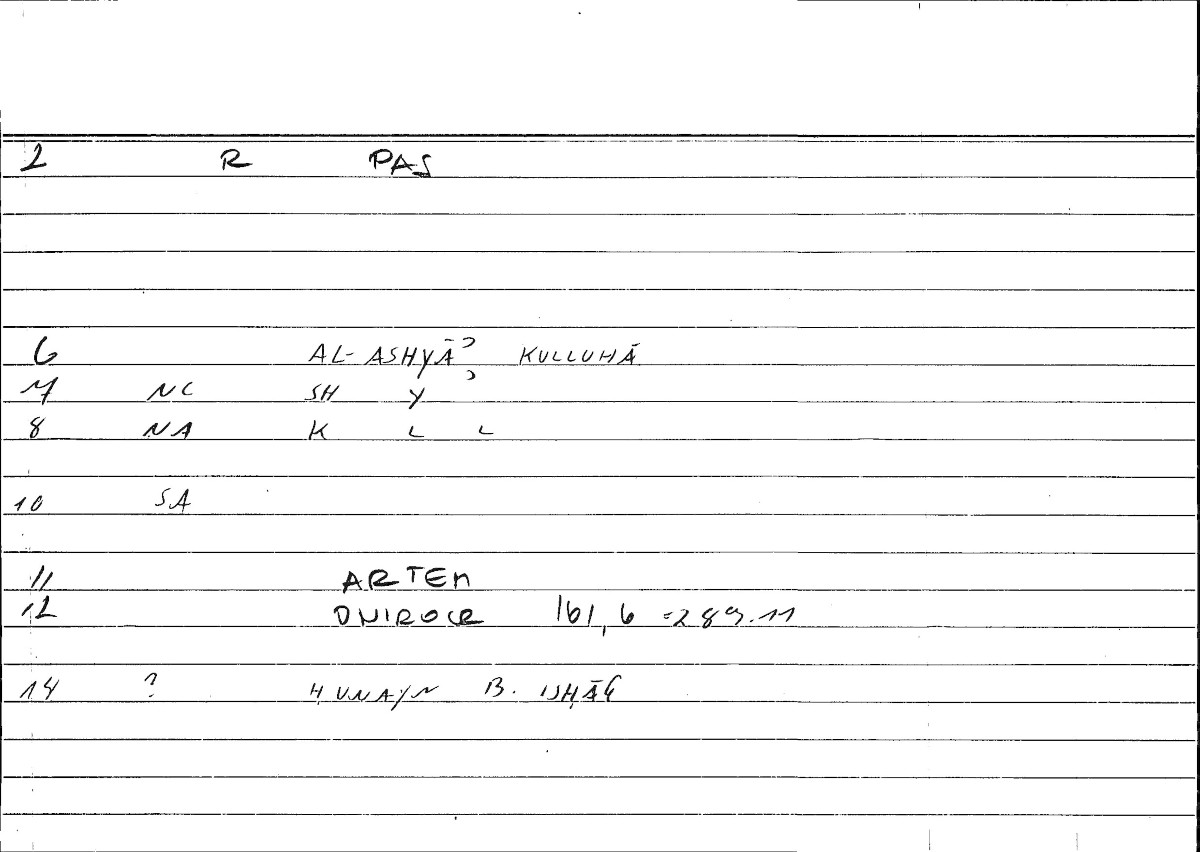 2 R PAS
6 AL-ASHYĀʾ KULLUHĀ
7 NC SH Y ʾ
8 NA K L L
10 SA
11 ARTEM
12 ONIROCR 161,6 =289.11
14 ? ḤUNAYN B. ISḤĀQ